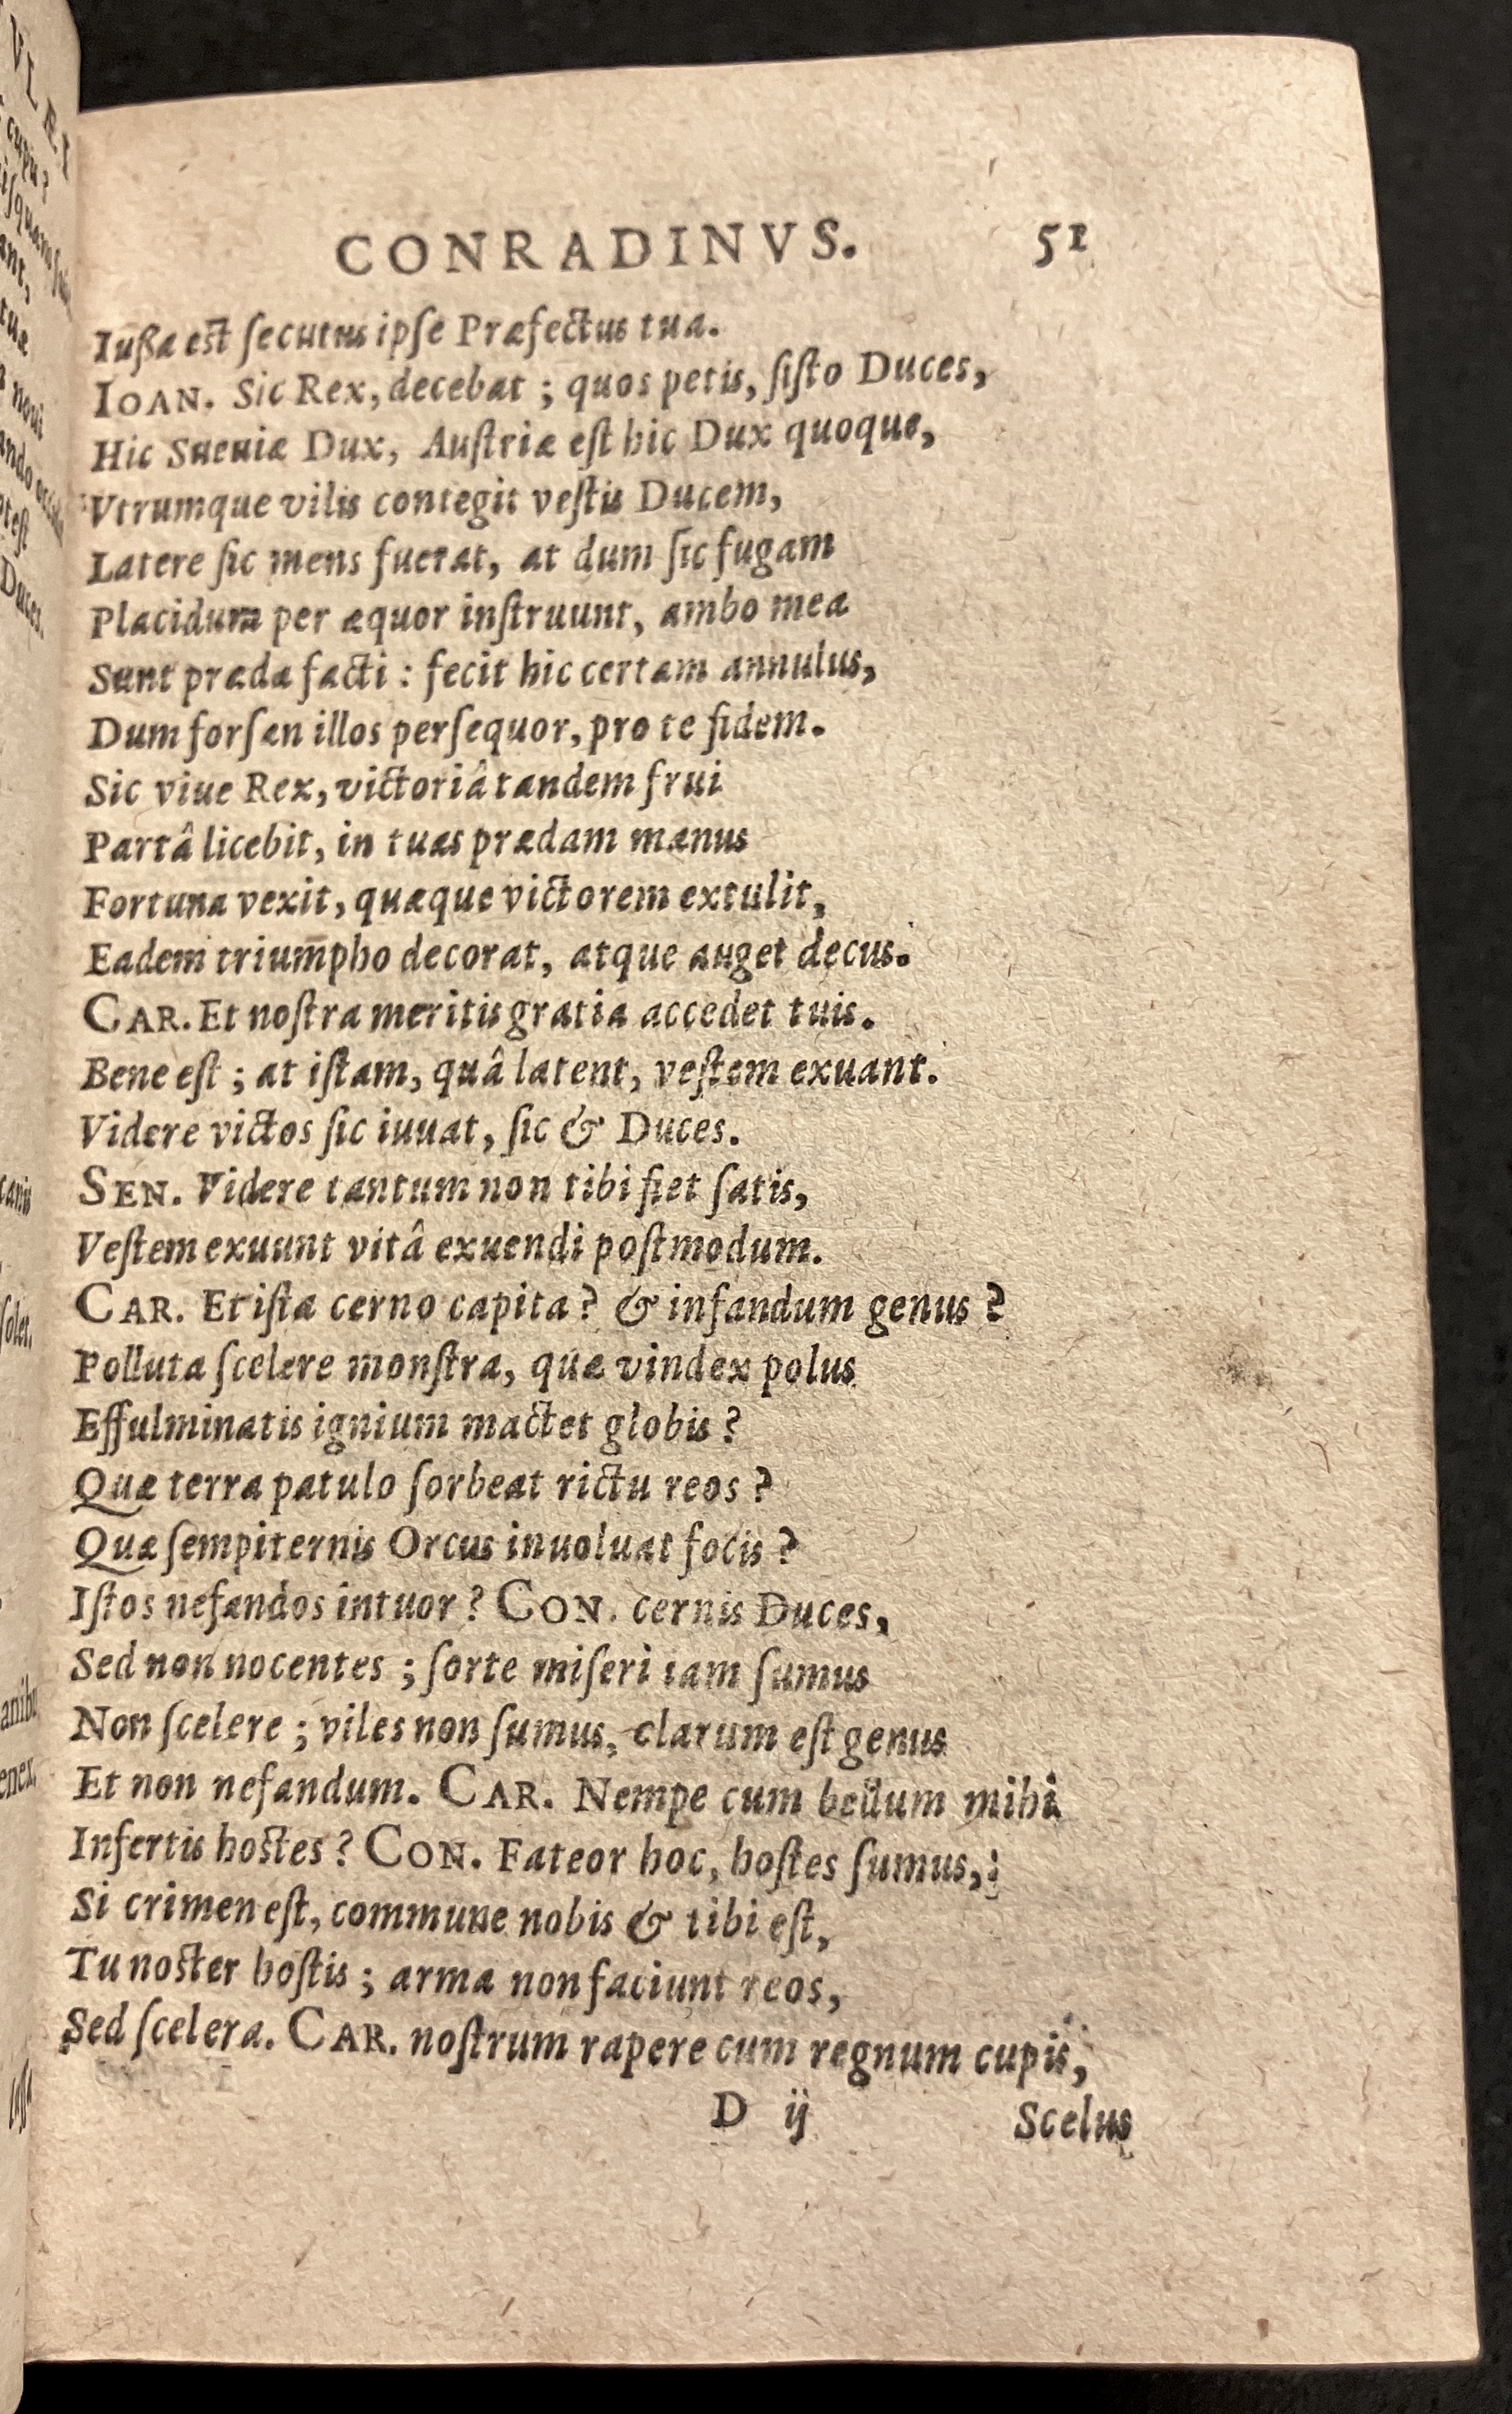 CONRADINVS. 51
Iußa est ſecutus ipſe Præfectus tua.
IOAN. Sic Rex, decebat ; quos petis, ſiſto Duces,
Hic Sueuiæ Dux, Auſtriæ eſt hic Dux quoque,
Vtrumque vilis contegit veſtis Ducem,
Latere ſic mens fuerat, at dum ſic fugam
Placidum per æquor inſtruunt, ambo mea
Sunt præda facti : fecit hic certam annulus,
Dum forſan illos perſequor, pro te fidem.
Sic viue Rex, victoriâ tandem frui
Partâ licebit, in tuas prædam manus
Fortuna vexit, quæque victorem extulit,
Eadem triumpho decorat, atque auget decus.
CAR. Et noſtra meritis gratia accedet tuis.
Bene eſt ; at iſtam, quâ latent, veſtem exuant.
Videre victos ſic iuuat, ſic & Duces.
SEN. Videre tantum non tibi fiet ſatis,
Veſtem exuunt vitâ exuendi poſtmodum.
CAR. Et iſta cerno capita ? & infandum genus ?
Polluta ſcelere monſtra, quæ vindex polus
Effulminatis ignium mactet globis ?
Quæ terra patulo ſorbeat rictu reos ?
Quæ ſempiternis Orcus inuoluat focis ?
Iſtos nefandos intuor ? CON. cernis Duces,
Sed non nocentes ; ſorte miſeri iam ſumus
Non ſcelere ; viles non ſumus, clarum eſt genus
Et non nefandum. CAR. Nempe cum bellum mihi
Infertis hostes ? CON. Fateor hoc, hoſtes ſumus,
Si crimen eſt, commune nobis & tibi eſt,
Tu noster hoſtis ; arma non faciunt reos,
Sed ſcelera. CAR. noſtrum rapere cum regnum cupis,
D ij Scelus